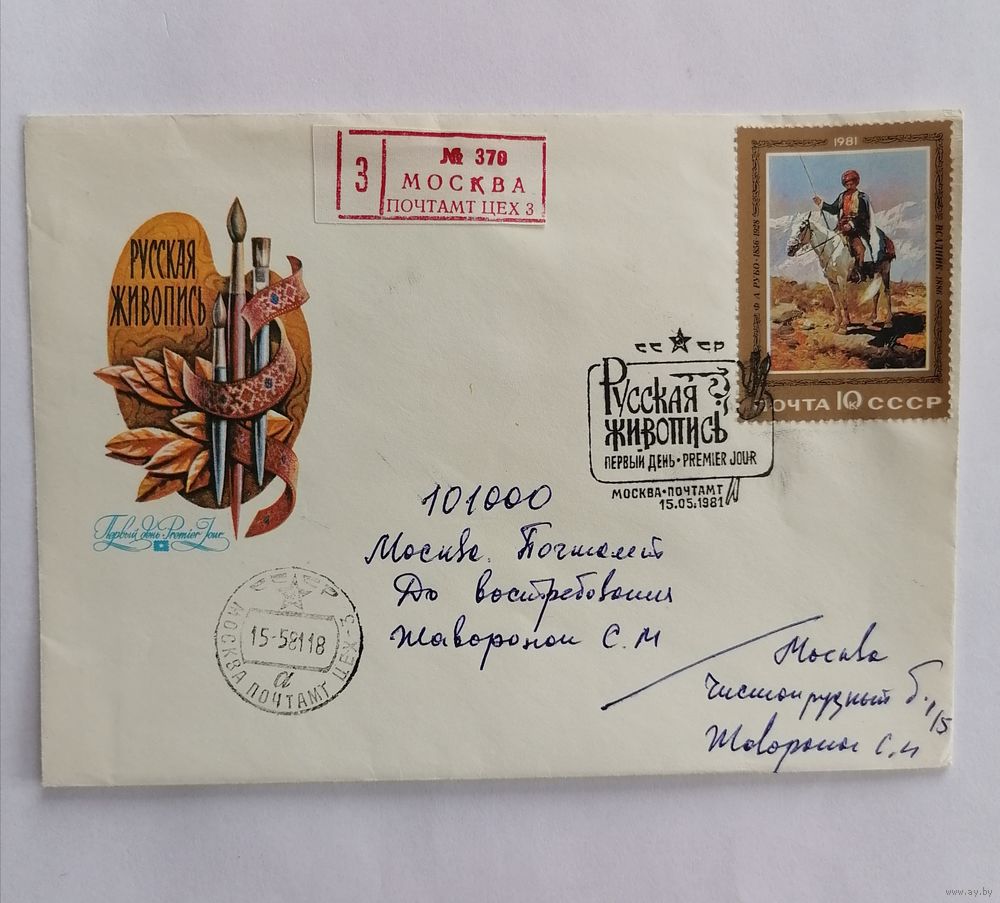 № 370
З
МОСКВА
ПОЧТАМТ ЦЕХ 3
1981
Ф. А. РУБО • 1856-1928
ВСАДНИК 1881
ПОЧТА 10К СССР
РУССКАЯ
ЖИВОПИСЬ
Первый день Premier Jour
СССР
РУССКАЯ
ЖИВОПИСЬ
ПЕРВЫЙ ДЕНЬ • PREMIER JOUR
МОСКВА • ПОЧТАМТ
15.05.1981
101000
Москва Почтамт
До востребования
Жаворонок С. М
СССР
МОСКВА ПОЧТАМТ ЦЕХ-3
15-58118
а
Москва
Чистопрудный б. 1/5
Жаворонок С.
www.ay.by